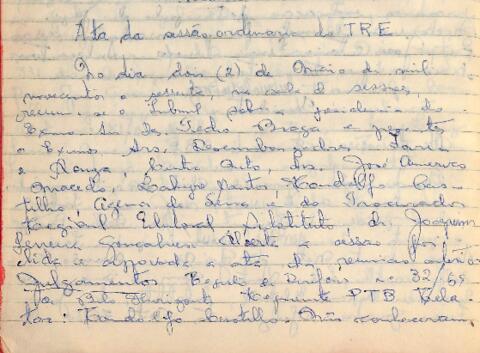 Ata da sessão ordinaria do TRE
No dia dois (2) de Maio de mil
novecentos e sessenta, na sala de sessões,
reuniu-se o Tribunal sob a presidencia do
Exmo Sr. Des. Pedro Braga e presentes
o Exmos. Srs. Desembargadores Faria
e Souza, Costa, Drs. José Americo
Macedo, Santos, Cas-
tilho, Agenor de Sena e do Procurador
Regional Eleitoral Substituto, dr. Joaquim
Ferreira Gonçalves. Aberta a sessão foi
lida e aprovada a ata da reunião anterior
Julgamentos Registro de Diretorio nº 32/59
de Belo Horizonte Requerente PTB Rela-
tor: Castilho. Não conheceram